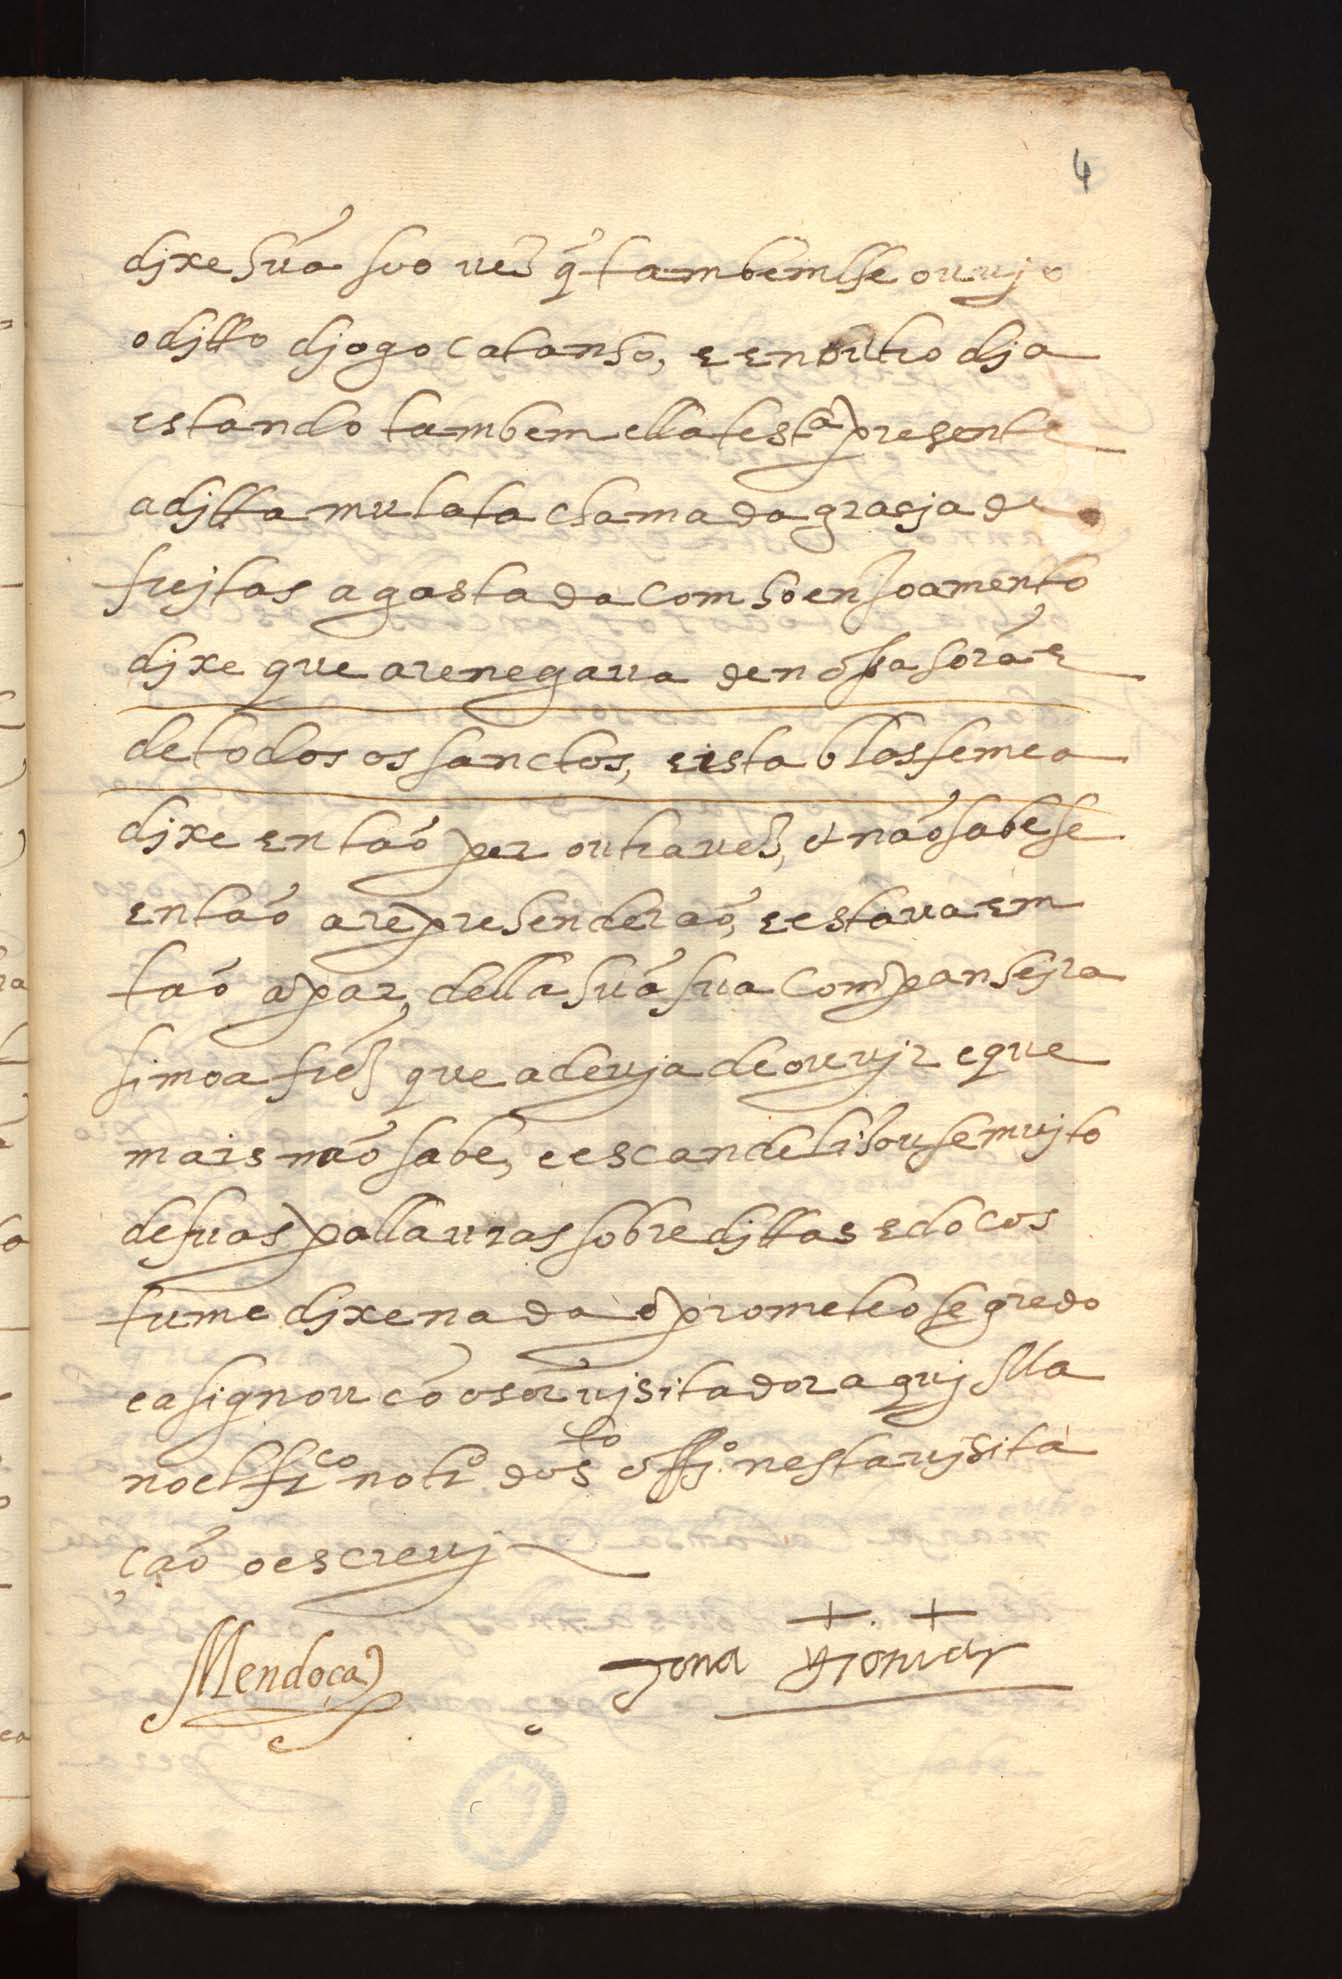 4
djxe hũa soo ves q̃ tambem lhe ouujo
o djtto djogo Catanho, e en outro dja
estando tambem ella testa presente
a djtta mulata chamada gracja de
frejtas agastada com ho enjoamento
djxe que arenegaua de nossa sorã e
de todos os sanctos, e ista blasfemea
djxe entaõ per outra ves, & naõ sabe se
entaõ a reprehenderaõ, e estaua em
taõ a par della hũa sua companhejra
simoa fres que a deuja de ouujr e que
mais naõ sabe, e escandelisouse mujto
de suas pallauras sobredjttas e do cos
tume djxe nada e prometeo segredo
e asignou cõ o sor ujsitador aquj Ma
noel frco notro do sto offjo nesta ujsita
çaõ o escreuj
Mendoça